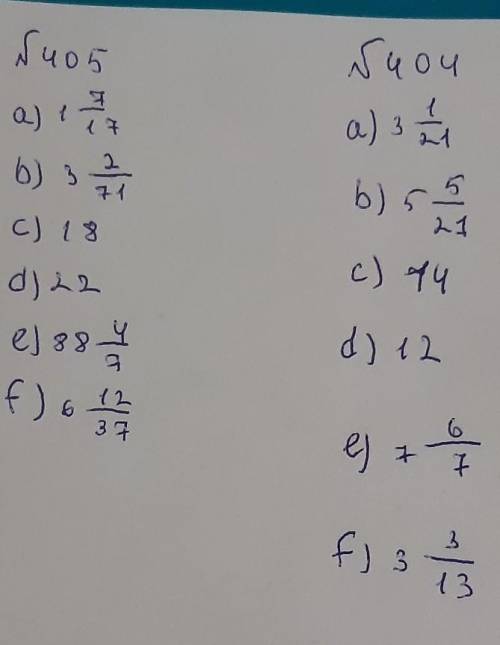 №405
a) 1 7/17
b) 3 2/71
c) 18
d) 22
e) 88 4/7
f) 6 12/37
№404
a) 3 1/21
b) 5 5/21
c) 14
d) 12
e) 7 6/7
f) 3 3/13